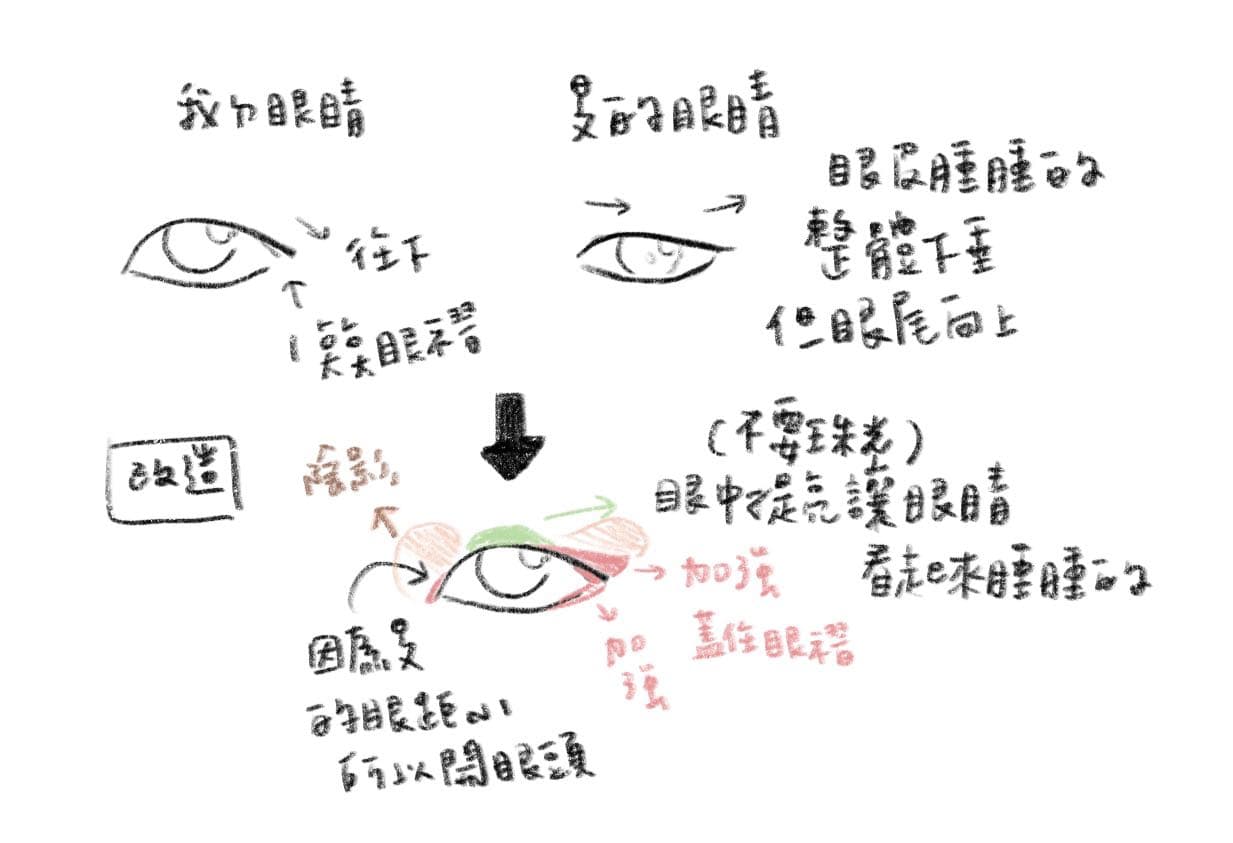 我ㄉ眼睛
旻的眼睛
往下
1 笑笑眼褶
眼皮腫腫的
整體下垂
但眼尾向上
改造
陰影
(不要珠光)
眼中提亮讓眼睛
看起來腫腫的
加強
蓋住眼褶
加
強
因為旻
的眼距小
所以開眼頭